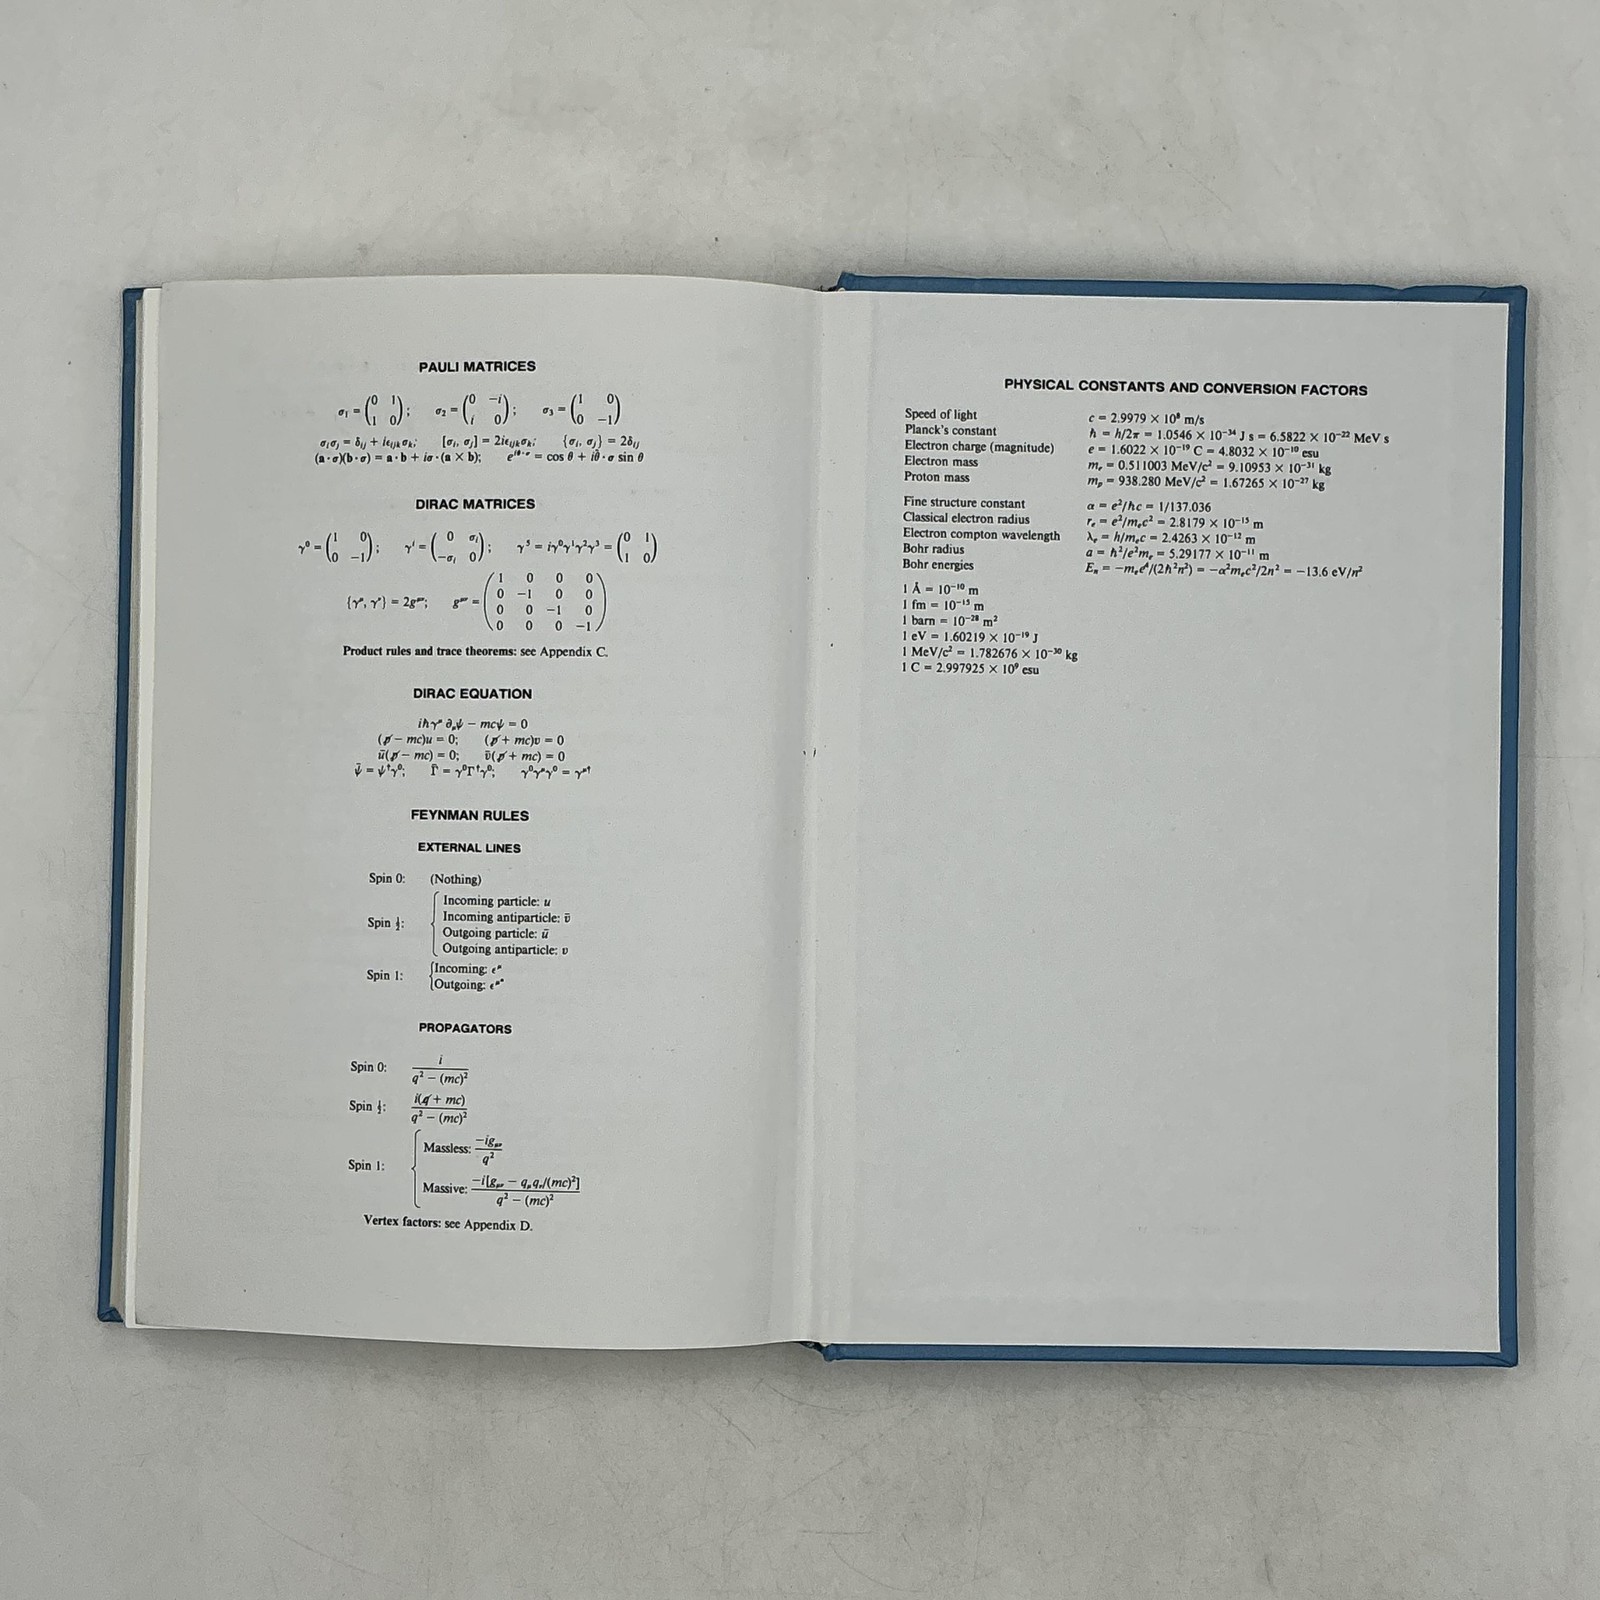 PAULI MATRICES
σ₁ = (0 1; 1 0); σ₂ = (0 −i; i 0); σ₃ = (1 0; 0 −1)
σᵢσⱼ = δᵢⱼ + iεᵢⱼₖσₖ; [σᵢ, σⱼ] = 2iεᵢⱼₖσₖ; {σᵢ, σⱼ} = 2δᵢⱼ
(a·σ)(b·σ) = a·b + iσ·(a × b); e^{iθ·σ} = cos θ + iθ̂·σ sin θ
DIRAC MATRICES
γ⁰ = (1 0; 0 −1); γⁱ = (0 σᵢ; −σᵢ 0); γ⁵ = iγ⁰γ¹γ²γ³ = (0 1; 1 0)
{γ^μ, γ^ν} = 2g^{μν}; g^{μν} = (1 0 0 0; 0 −1 0 0; 0 0 −1 0; 0 0 0 −1)
Product rules and trace theorems: see Appendix C.
DIRAC EQUATION
iħγ^μ ∂_μψ − mcψ = 0
(p̸ − mc)u = 0; (p̸ + mc)v = 0
ū(p̸ − mc) = 0; v̄(p̸ + mc) = 0
ψ̄ = ψ†γ⁰; Γ̄ = γ⁰Γ†γ⁰; γ⁰γ^μγ⁰ = γ^{μ†}
FEYNMAN RULES
EXTERNAL LINES
Spin 0: (Nothing)
Spin ½:
Incoming particle: u
Incoming antiparticle: v̄
Outgoing particle: ū
Outgoing antiparticle: v
Spin 1:
Incoming: ε^μ
Outgoing: ε^{μ*}
PROPAGATORS
Spin 0: i / (q² − (mc)²)
Spin ½: i(q̸ + mc) / (q² − (mc)²)
Spin 1:
Massless: −ig_{μν} / q²
Massive: −i[g_{μν} − q_μq_ν/(mc)²] / (q² − (mc)²)
Vertex factors: see Appendix D.
PHYSICAL CONSTANTS AND CONVERSION FACTORS
Speed of light c = 2.9979 × 10⁸ m/s
Planck's constant ħ = h/2π = 1.0546 × 10⁻³⁴ J s = 6.5822 × 10⁻²² MeV s
Electron charge (magnitude) e = 1.6022 × 10⁻¹⁹ C = 4.8032 × 10⁻¹⁰ esu
Electron mass mₑ = 0.511003 MeV/c² = 9.10953 × 10⁻³¹ kg
Proton mass mₚ = 938.280 MeV/c² = 1.67265 × 10⁻²⁷ kg
Fine structure constant α = e²/ħc = 1/137.036
Classical electron radius rₑ = e²/mₑc² = 2.8179 × 10⁻¹⁵ m
Electron compton wavelength λₑ = h/mₑc = 2.4263 × 10⁻¹² m
Bohr radius a = ħ²/e²mₑ = 5.29177 × 10⁻¹¹ m
Bohr energies Eₙ = −mₑe⁴/(2ħ²n²) = −α²mₑc²/2n² = −13.6 eV/n²
1 Å = 10⁻¹⁰ m
1 fm = 10⁻¹⁵ m
1 barn = 10⁻²⁸ m²
1 eV = 1.60219 × 10⁻¹⁹ J
1 MeV/c² = 1.782676 × 10⁻³⁰ kg
1 C = 2.997925 × 10⁹ esu